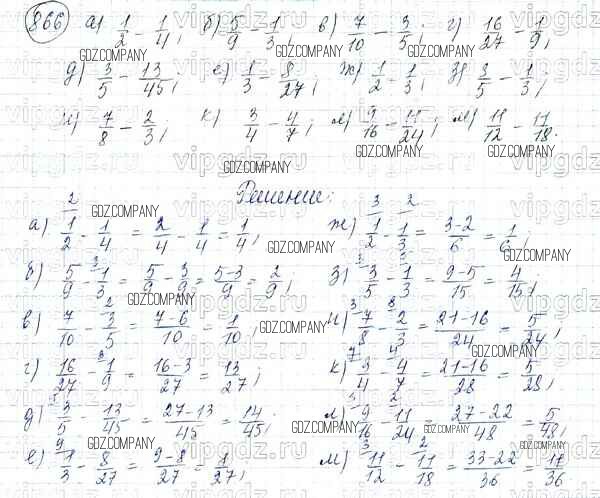 866 а) 1/2 - 1/4; б) 5/9 - 1/3; в) 7/10 - 3/5; г) 16/27 - 1/9;
д) 3/5 - 13/45; е) 1/3 - 8/27; ж) 1/2 - 1/3; з) 3/5 - 1/3;
и) 7/8 - 2/3; к) 3/4 - 4/7; л) 9/16 - 11/24; м) 11/12 - 11/18.
Решение:
а) 1/2 - 1/4 = 2/4 - 1/4 = 1/4;
б) 5/9 - 1/3 = 5/9 - 3/9 = 5-3/9 = 2/9;
в) 7/10 - 3/5 = 7-6/10 = 1/10;
г) 16/27 - 1/9 = 16-3/27 = 13/27;
д) 3/5 - 13/45 = 27-13/45 = 14/45;
е) 1/3 - 8/27 = 9-8/27 = 1/27;
ж) 1/2 - 1/3 = 3-2/6 = 1/6;
з) 3/5 - 1/3 = 9-5/15 = 4/15;
и) 7/8 - 2/3 = 21-16/24 = 5/24;
к) 3/4 - 4/7 = 21-16/28 = 5/28;
л) 9/16 - 11/24 = 27-22/48 = 5/48;
м) 11/12 - 11/18 = 33-22/36 = 11/36
GDZ.COMPANY
vipgdz.ru